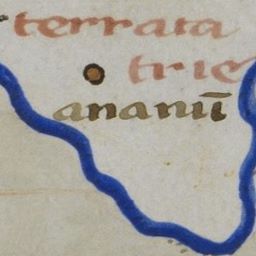 terrata
trie
ananū